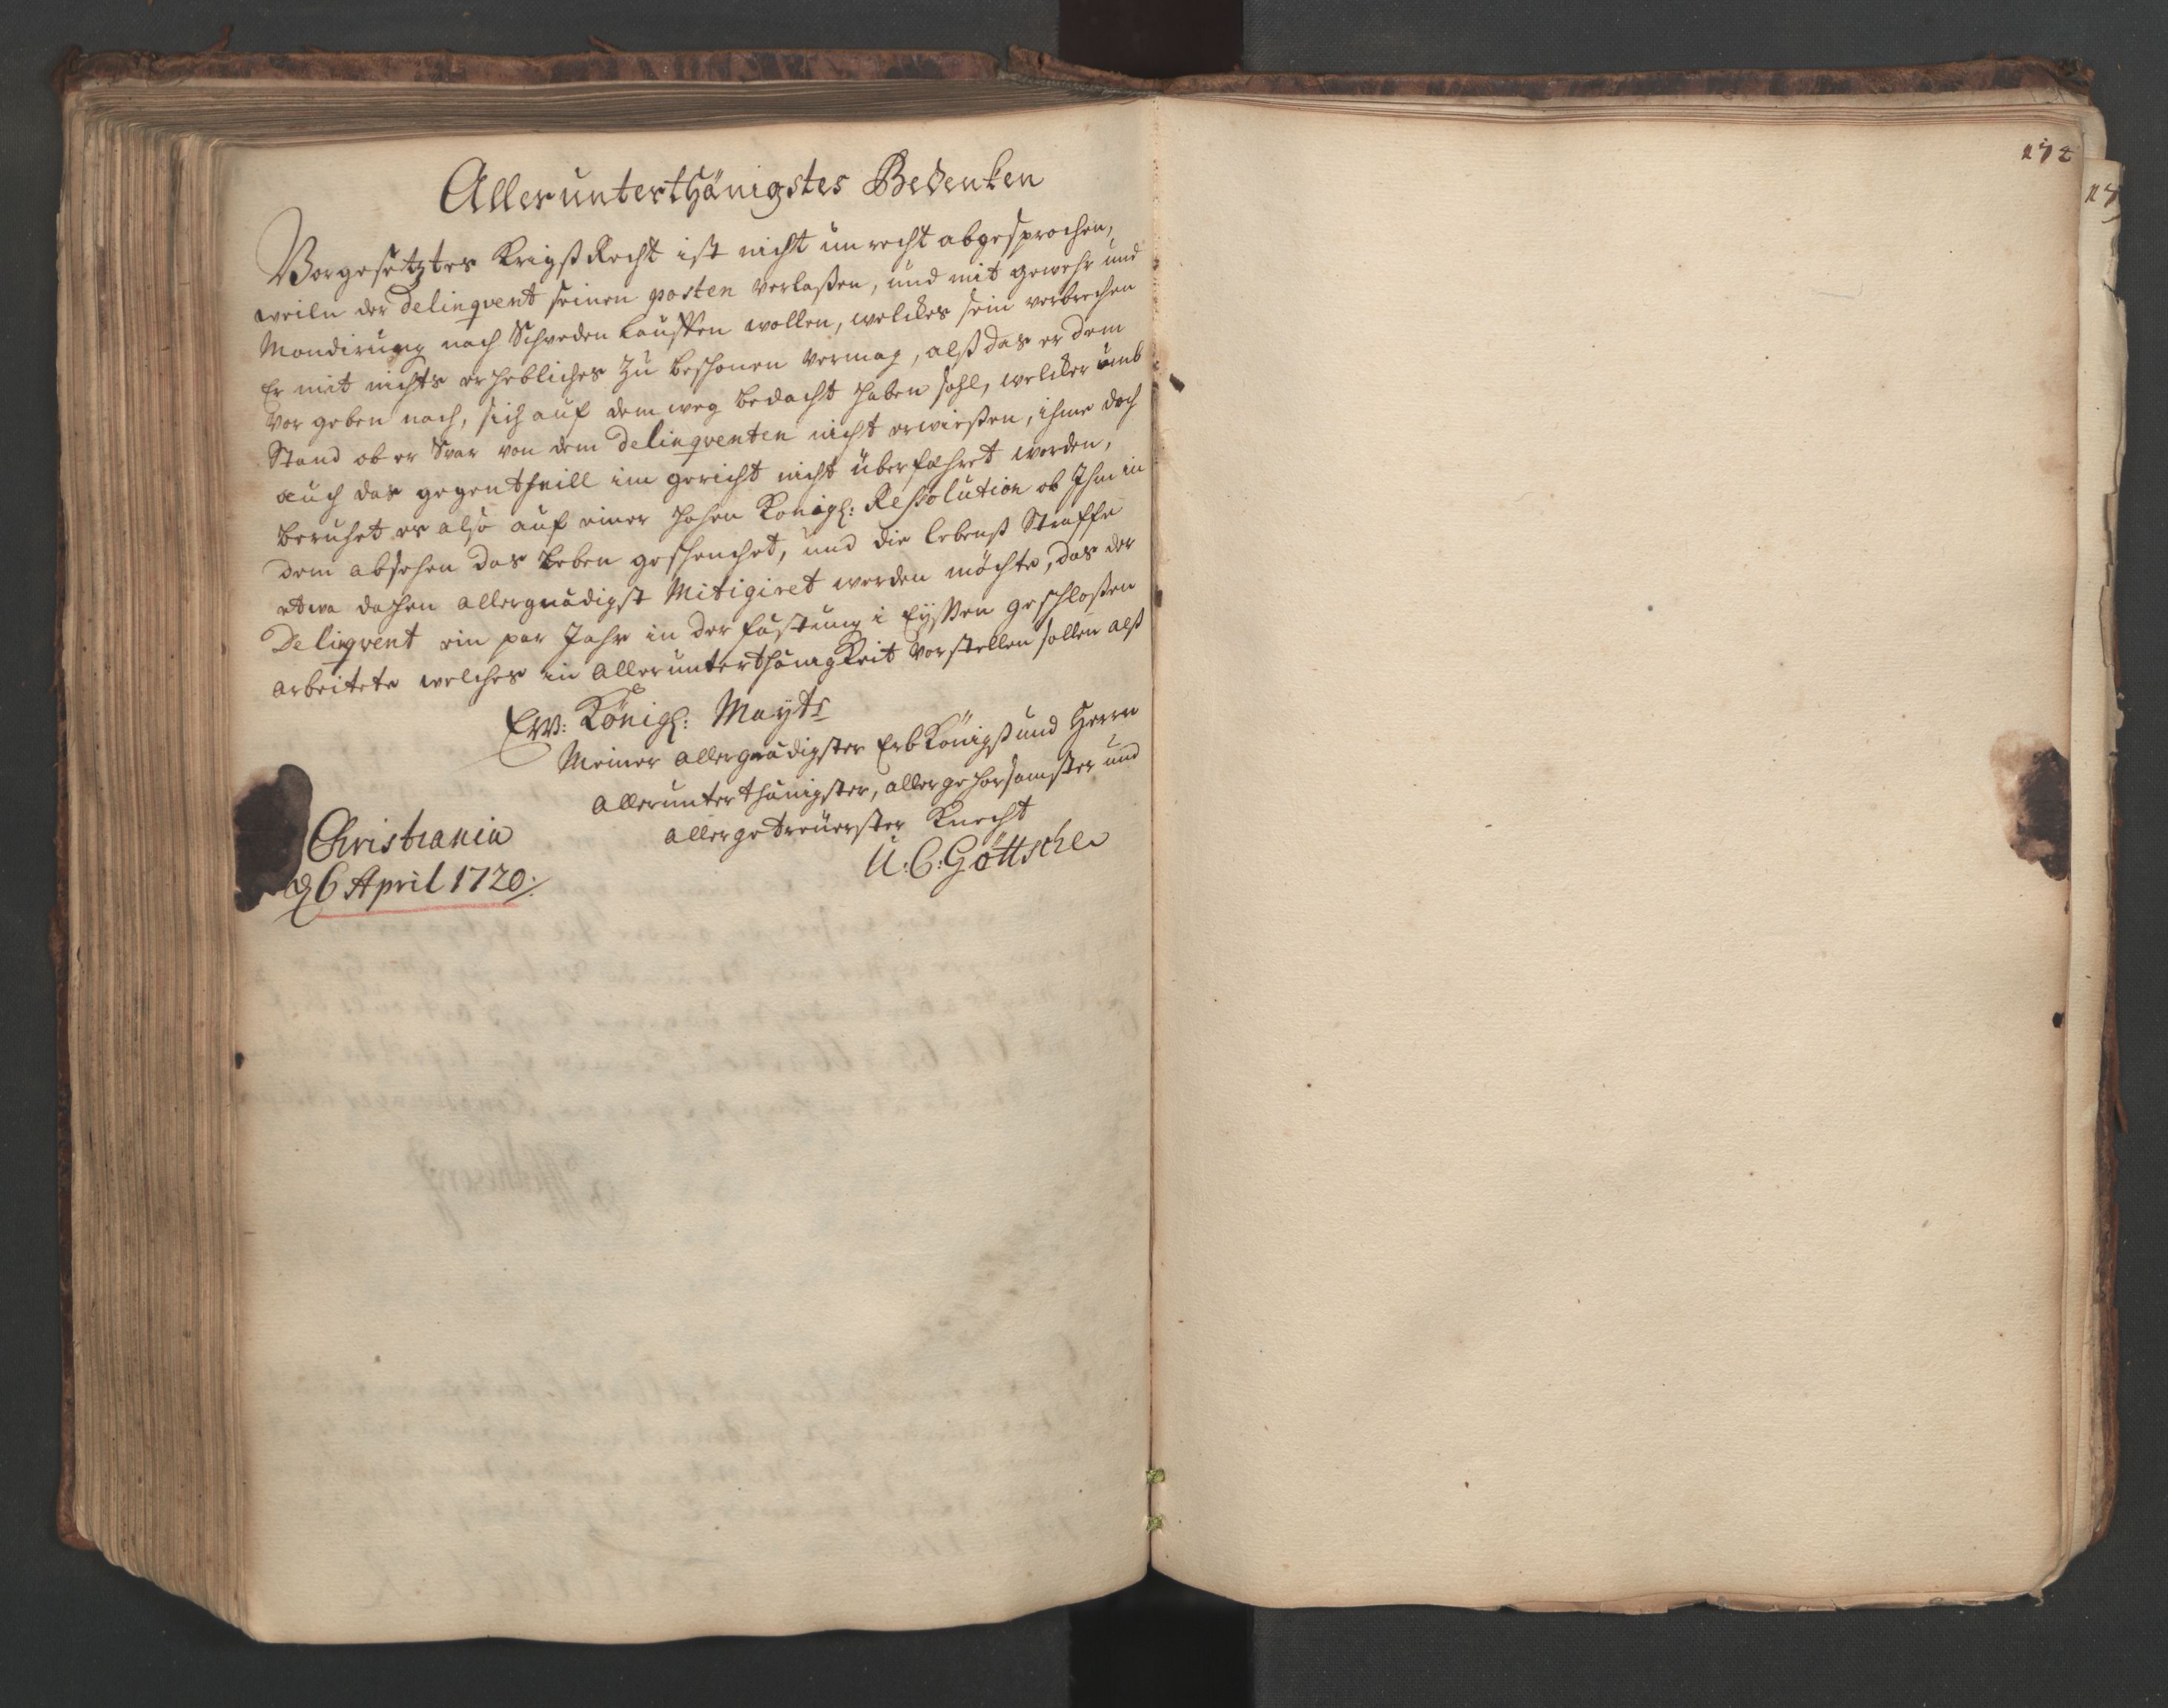 Allerunterthänigstes Bedenken
Vorgesetztes KrigsRecht ist nicht unrecht abgesprochen,
weiln der Delinqvent seinen posten verlaßen, und mit gewehr und
Mondirung nach Schweden lauffen wollen, welches sein verbrechen
Er mit nichts erhebliches zu beschonen vermag, alß das er dem
vorgeben nach, sich auf dem weg bedacht haben sohl, welcher umb
Stand ob er zwar von dem Delinqventen nicht erwießen, ihme doch
auch das gegentheill im gericht nicht überfahret worden,
beruhet es also auf einer hohen Königl: Resolution ob Ihm in
dem absehen das Leben geschencket, und die lebenß Straffe
etwa dahen allergnädigst Mitigiret werden möchte, das der
Deliqvent ein par Jahr in der fästung i Eyßen geschloßen
arbeitete welches in allerunterthänigkeit vorstellen sollen alß
Ew: Königl: Mayts
Meiner allergnädigster ErbKönigß und Herrn
allerunterthänigster, allergehorsamster und
allergetreuerster Knecht
U: C: Göttsche
Christiania
d 6 April 1720.
172